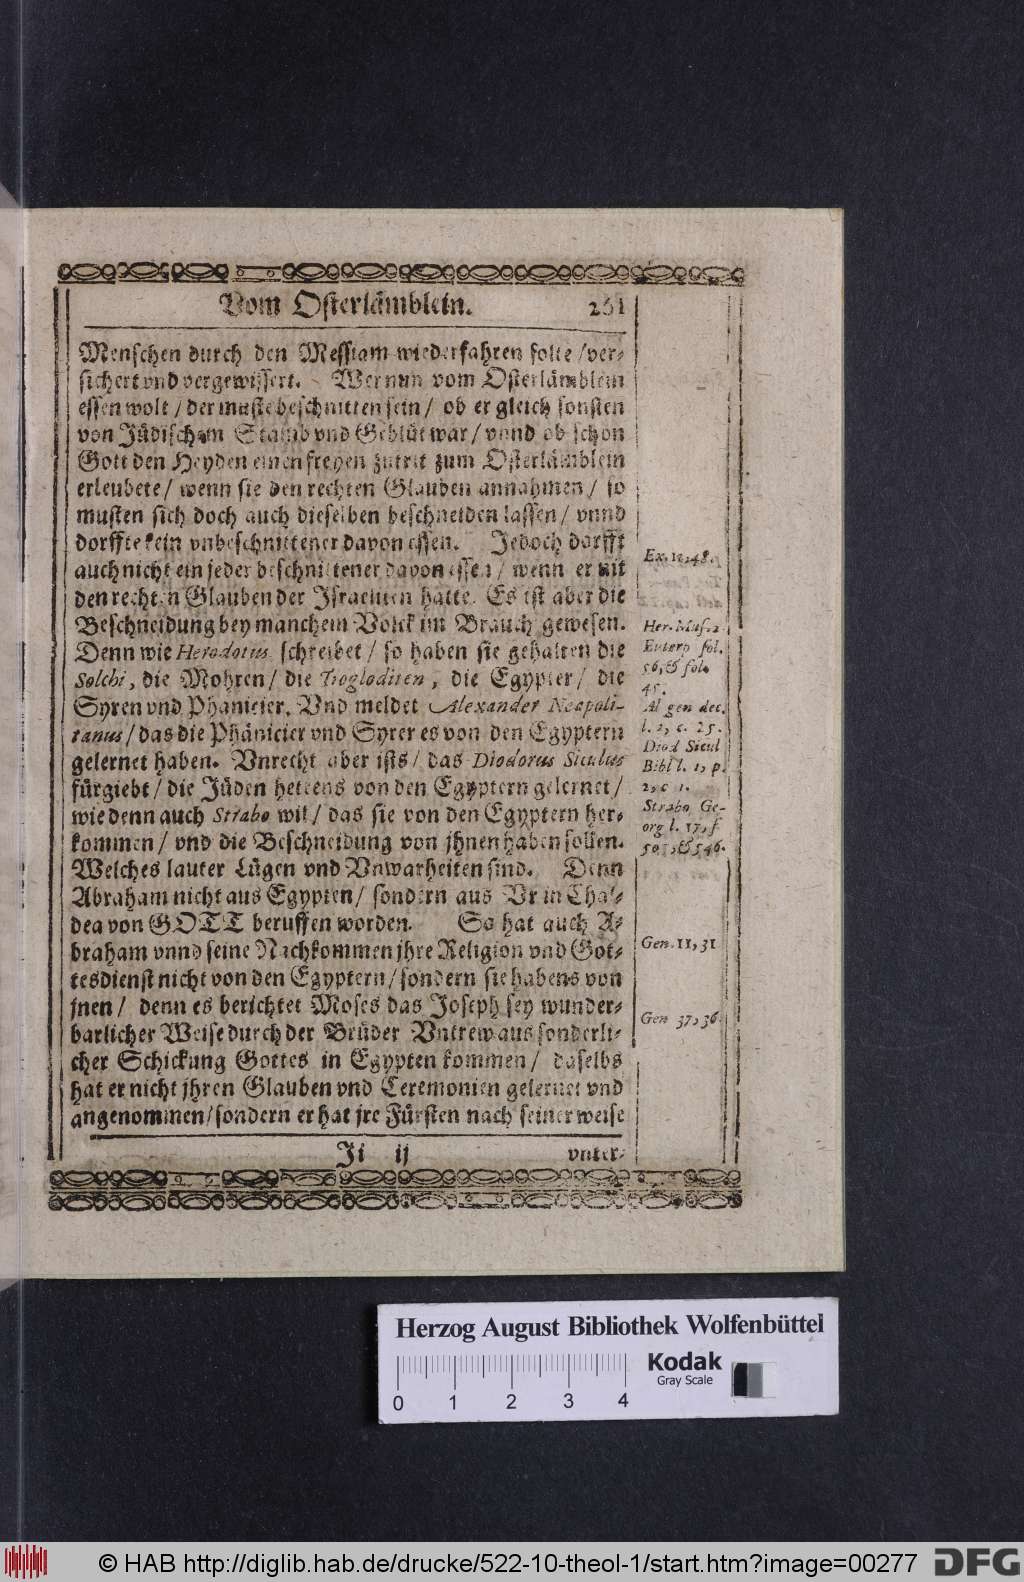 Vom Osterlämblein. 261
Menschen durch den Messiam wiederfahren solte / ver-
sichert vnd vergewissert. Wer nun vom Osterlämblein
essen wolt / der muste beschnitten sein / ob er gleich sonsten
von Jüdischem Stamb vnd Geblüt war / vnnd ob schon
Gott den Heyden einen freyen zutrit zum Osterlämblein
erleubete / wenn sie den rechten Glauben annahmen / so
musten sich doch auch dieselben beschneiden lassen / vnnd
dorffte kein vnbeschnittener davon essen. Jedoch dorfft
auch nicht ein jeder beschnittener davon essen / wenn er nit
den rechten Glauben der Israeliten hatte. Es ist aber die
Beschneidung bey manchem Volck im Brauch gewesen.
Denn wie Herodotus schreibet / so haben sie gehalten die
Solchi, die Mohren / die Trogloditen, die Egypter / die
Syren vnd Phänicier. Vnd meldet Alexander Neapoli-
tanus / das die Phänicier vnd Syrer es von den Egyptern
gelernet haben. Vnrecht aber ists / das Diodorus Siculus
fürgiebt / die Jüden hetten es von den Egyptern gelernet /
wie denn auch Strabo wil / das sie von den Egyptern her-
kommen / vnd die Beschneidung von jhnen haben sollen.
Welches lauter Lügen vnd Vnwarheiten sind. Denn
Abraham nicht aus Egypten / sondern aus Vr in Chal-
dea von GOTT beruffen worden. So hat auch A-
braham vnnd seine Nachkommen jhre Religion vnd Got-
tesdienst nicht von den Egyptern / sondern sie habens von
jnen / denn es berichtet Moses das Joseph sey wunder-
barlicher Weise durch der Brüder Vntrew aus sonderli-
cher Schickung Gottes in Egypten kommen / daselbs
hat er nicht jhren Glauben vnd Ceremonien gelernet vnd
angenommen / sondern er hat jre Fürsten nach seiner weise
Ii ij vnter-
Ex. 12, 48.
Her. Mus. 2
Euterp fol.
56, & fol.
45.
Al gen dec.
l. 2, c. 25.
Diod Sicul
Bibl l. 1, p.
2, c 1.
Strabo Ge-
org l. 17, f
505, & 546.
Gen. 11, 31
Gen 37, 36.
Herzog August Bibliothek Wolfenbüttel
Kodak
Gray Scale
0 1 2 3 4
© HAB http://diglib.hab.de/drucke/522-10-theol-1/start.htm?image=00277
DFG